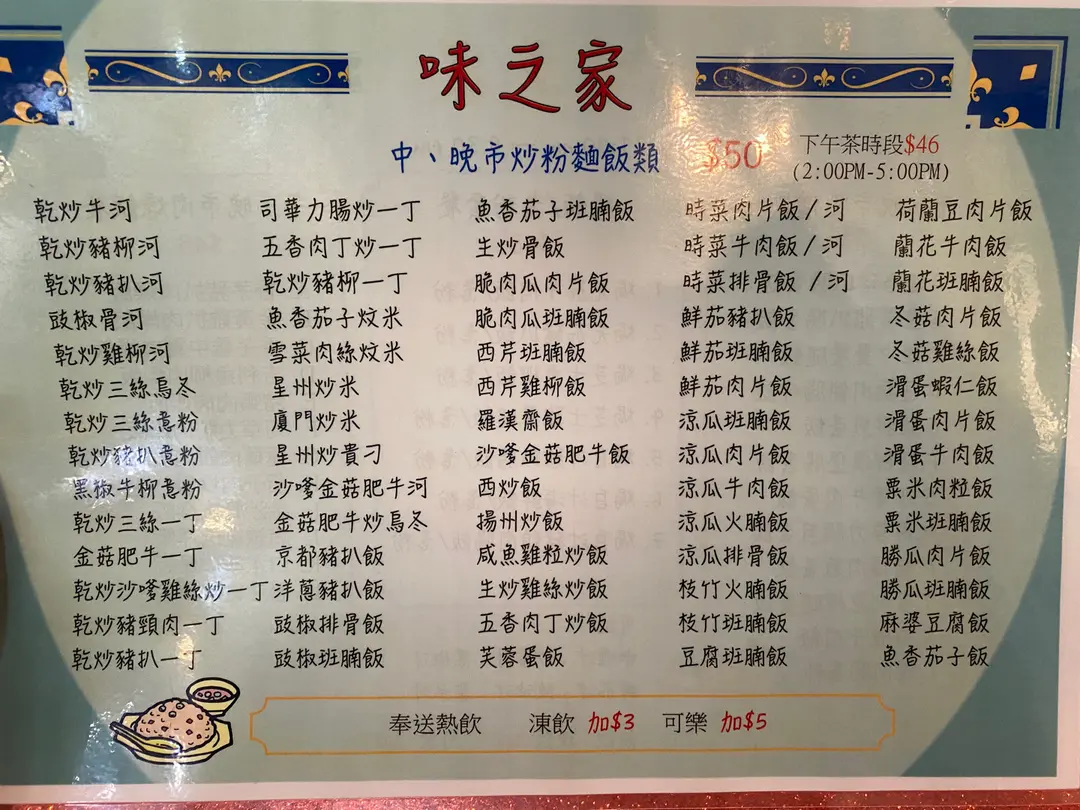 味之家
中、晚市炒粉麵飯類 $50 下午茶時段$46
(2:00PM-5:00PM)
乾炒牛河
乾炒豬柳河
乾炒豬扒河
豉椒骨河
乾炒雞柳河
乾炒三絲烏冬
乾炒三絲意粉
乾炒豬扒意粉
黑椒牛柳意粉
乾炒三絲一丁
金菇肥牛一丁
乾炒沙嗲雞絲炒一丁
乾炒豬頸肉一丁
乾炒豬扒一丁
司華力腸炒一丁
五香肉丁炒一丁
乾炒豬柳一丁
魚香茄子炆米
雪菜肉絲炆米
星州炒米
廈門炒米
星州炒貴刁
沙嗲金菇肥牛河
金菇肥牛炒烏冬
京都豬扒飯
洋蔥豬扒飯
豉椒排骨飯
豉椒班腩飯
魚香茄子班腩飯
生炒骨飯
脆肉瓜肉片飯
脆肉瓜班腩飯
西芹班腩飯
西芹雞柳飯
羅漢齋飯
沙嗲金菇肥牛飯
西炒飯
揚州炒飯
咸魚雞粒炒飯
生炒雞絲炒飯
五香肉丁炒飯
芙蓉蛋飯
時菜肉片飯/河
時菜牛肉飯/河
時菜排骨飯/河
鮮茄豬扒飯
鮮茄班腩飯
鮮茄肉片飯
涼瓜班腩飯
涼瓜肉片飯
涼瓜牛肉飯
涼瓜火腩飯
涼瓜排骨飯
枝竹火腩飯
枝竹班腩飯
豆腐班腩飯
荷蘭豆肉片飯
蘭花牛肉飯
蘭花班腩飯
冬菇肉片飯
冬菇雞絲飯
滑蛋蝦仁飯
滑蛋肉片飯
滑蛋牛肉飯
粟米肉粒飯
粟米班腩飯
勝瓜肉片飯
勝瓜班腩飯
麻婆豆腐飯
魚香茄子飯
奉送熱飲 凍飲 加$3 可樂 加$5